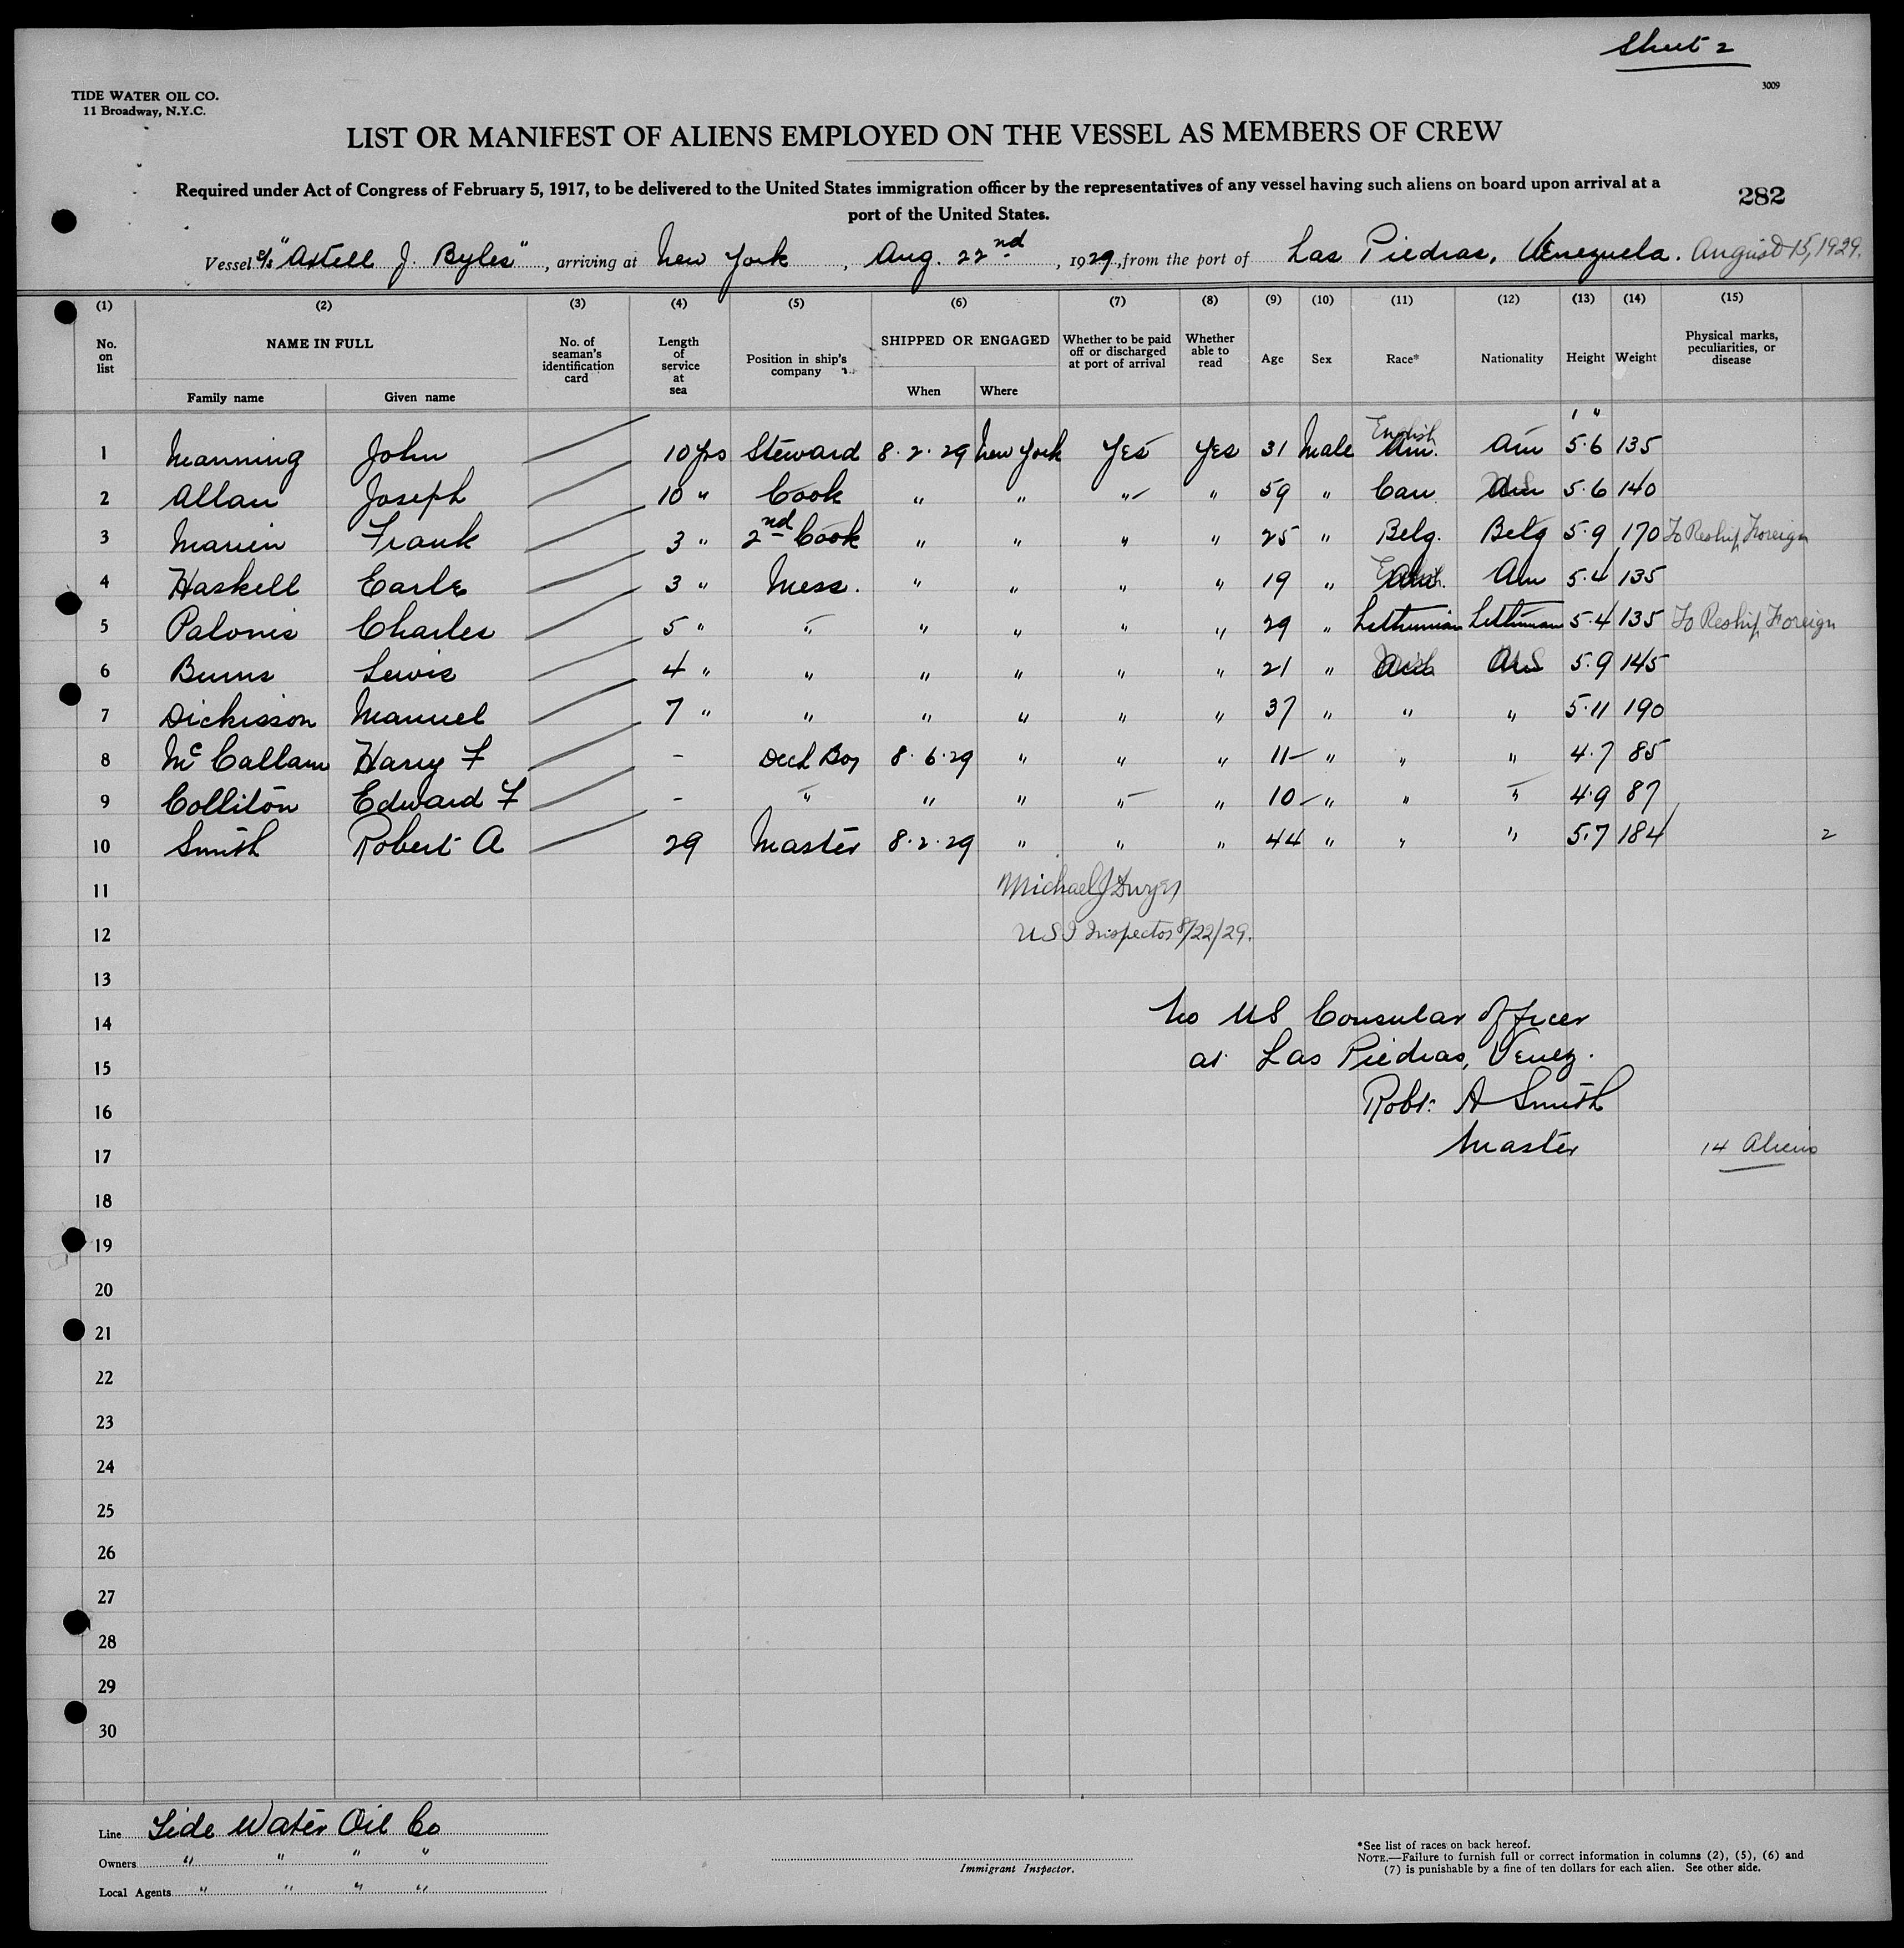 Sheet 2
3009
TIDE WATER OIL CO.
11 Broadway, N.Y.C.
LIST OR MANIFEST OF ALIENS EMPLOYED ON THE VESSEL AS MEMBERS OF CREW
Required under Act of Congress of February 5, 1917, to be delivered to the United States immigration officer by the representatives of any vessel having such aliens on board upon arrival at a
port of the United States.
282
Vessel S/S "Axtell J. Byles", arriving at New York, Aug. 22nd, 1929, from the port of Las Piedras, Venezuela. August 15, 1929.
(1) (2) (3) (4) (5) (6) (7) (8) (9) (10) (11) (12) (13) (14) (15)
No. on list NAME IN FULL Family name Given name No. of seaman's identification card Length of service at sea Position in ship's company SHIPPED OR ENGAGED When Where Whether to be paid off or discharged at port of arrival Whether able to read Age Sex Race* Nationality Height Weight Physical marks, peculiarities, or disease
' "
1 Manning John 10 yrs Steward 8.2.29 New York Yes Yes 31 Male English Am. Am 5.6 135
2 Allan Joseph 10 " Cook " " " " 59 " Can. Am 5.6 140
3 Marien Frank 3 " 2nd Cook " " " " 25 " Belg. Belg 5.9 170 To Reship Foreign
4 Haskell Earle 3 " Mess. " " " " 19 " Am 5.4 135
5 Palonis Charles 5 " " " " " " 29 " Lethunian Lethunian 5.4 135 To Reship Foreign
6 Burns Lewis 4 " " " " " " 21 " Am 5.9 145
7 Dickisson Manuel 7 " " " " " " 37 " " " 5.11 190
8 McCallam Harry F - Deck Boy 8.6.29 " " " 11 " " " 4.7 85
9 Colliton Edward F - " " " " " 10 " " " 4.9 87
10 Smith Robert A 29 Master 8.2.29 " " " 44 " " " 5.7 184 2
11 Michael J Dwyer
12 USI Inspector 8/22/29.
13
14 No US Consular Officer
15 at Las Piedras, Venez.
16 Robt. A Smith
17 Master 14 Aliens
18
19
20
21
22
23
24
25
26
27
28
29
30
Line Tide Water Oil Co
Owners " " " "
Local Agents " " " "
Immigrant Inspector.
*See list of races on back hereof.
NOTE.—Failure to furnish full or correct information in columns (2), (5), (6) and
(7) is punishable by a fine of ten dollars for each alien. See other side.